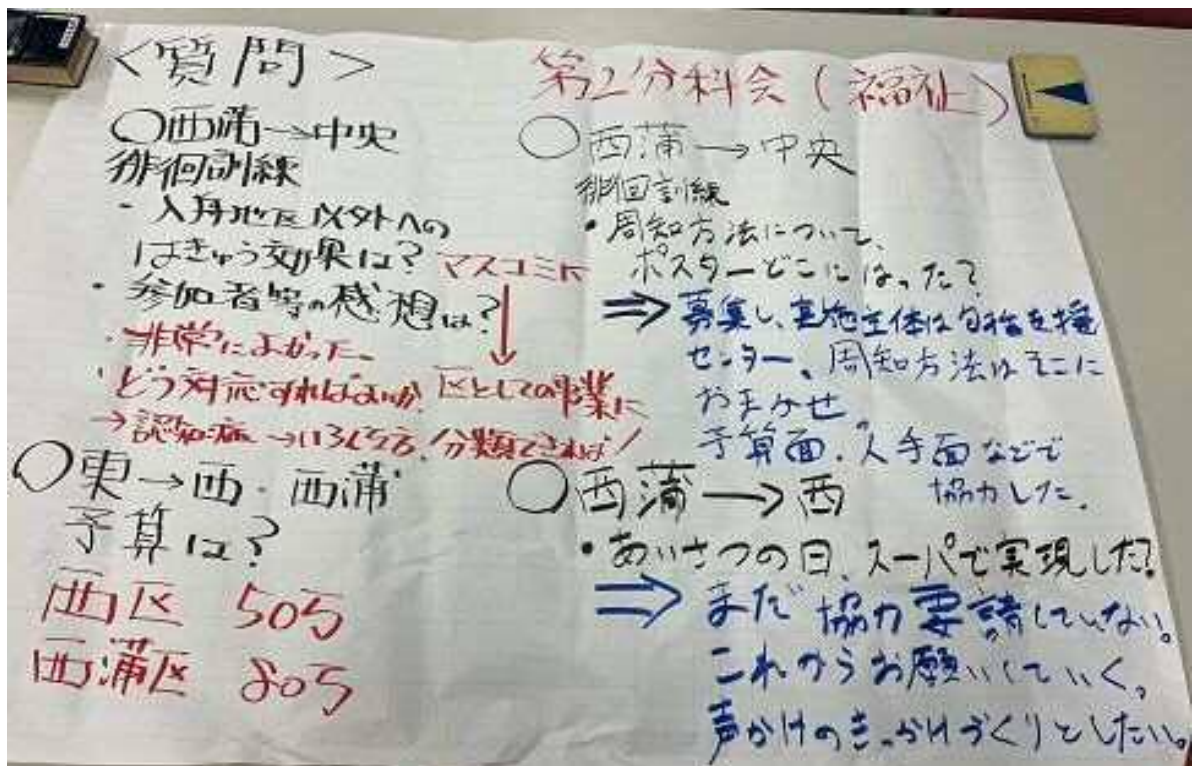 <質問>
○西蒲→中央
徘徊訓練
・入舟地区以外への
はきゅう効果は?
・参加者等の感想は?
マスコミに
↓
区としての事業に
・非常によかった。
・どう対応すればよいか
→認知症→いろいろ 分類できれば
○東→西・西蒲
予算は?
西区 50万
西蒲区 80万
第2分科会(福祉)
○西蒲→中央
徘徊訓練
・周知方法について、
ポスターどこにはった?
⇒募集し、実施主体は包括支援
センター、周知方法はそこに
おまかせ。
予算面、人手面などで
協力した。
○西蒲→西
・あいさつの日、スーパで実現した?
⇒まだ協力要請していない。
これからお願いしていく。
声かけのきっかけづくりとしたい。